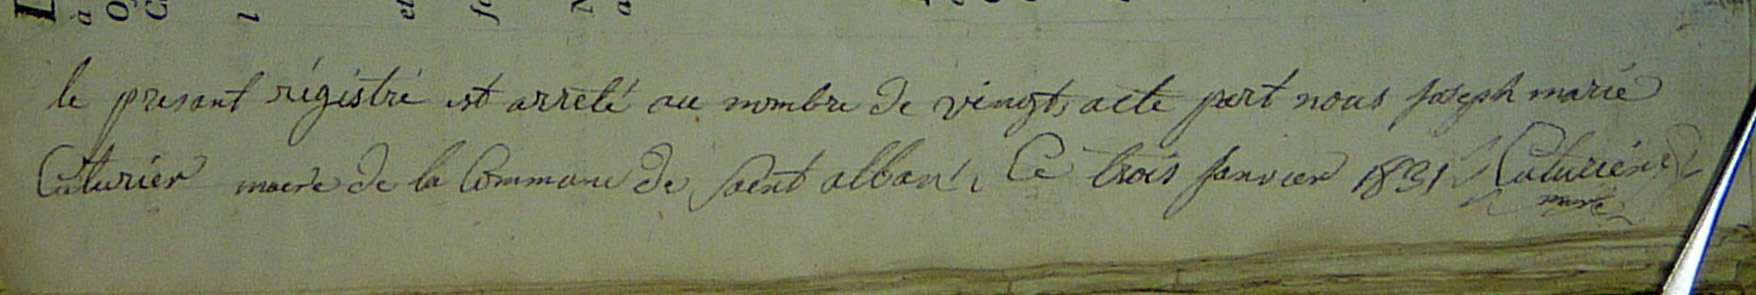 le presant régistré est arrelé au nombre de vingts acte part nous joseph marie
Cuturier maere de la Commune de saent alban, Ce trois janvier 1831 Cuturier
mare